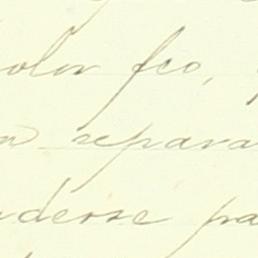 olor feo,
n separa
nderse pa